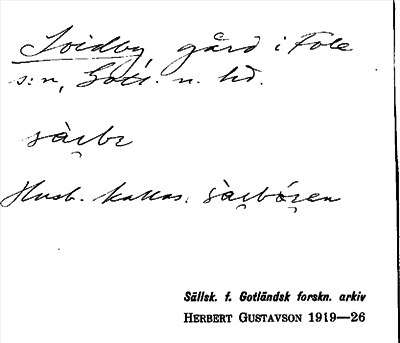 Svidby, gård i Fole
s:n, Gotl. n. hd.
sàrbi
Husb. kallas: sàrbóren
Sällsk. f. Gotländsk forskn. arkiv
HERBERT GUSTAVSON 1919—26